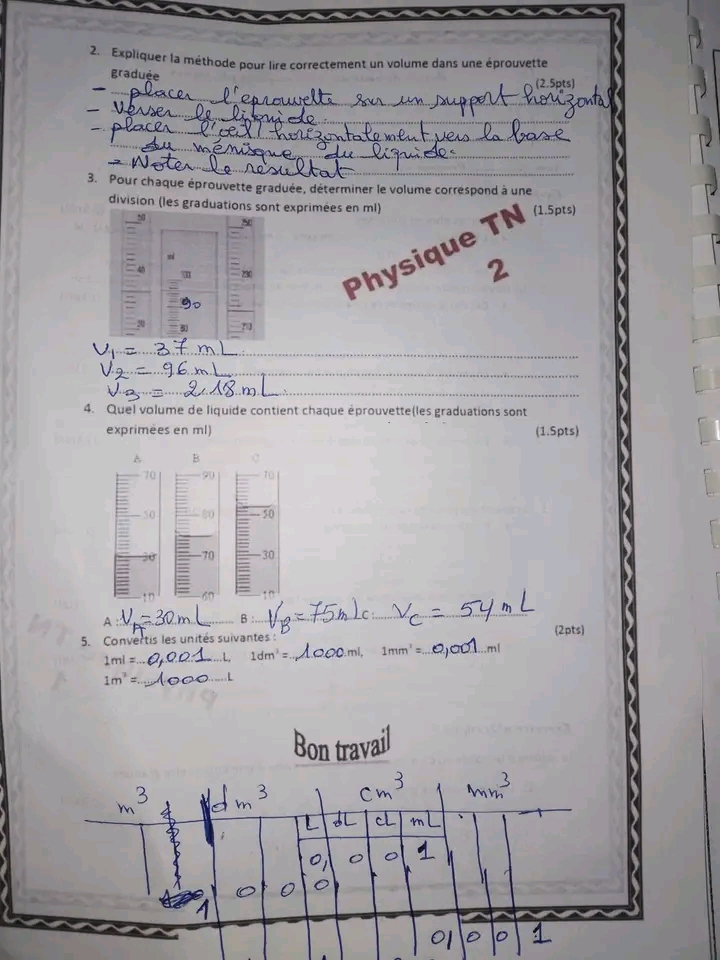 2. Expliquer la méthode pour lire correctement un volume dans une éprouvette
graduée (2.5pts)
- placer l'eprouvette sur un support horizontal
- Verser le liquide
- placer l'oeil horizontalement vers la base
du ménisque du liquide.
- Noter le resultat
3. Pour chaque éprouvette graduée, déterminer le volume correspond à une
division (les graduations sont exprimées en ml) (1.5pts)
50 ml 250
40 100 230
90
30 80 210
Physique TN
2
V1 = 37 mL
V2 = 96 mL
V3 = 218 mL
4. Quel volume de liquide contient chaque éprouvette(les graduations sont
exprimées en ml) (1.5pts)
A B C
70 90 70
50 80 50
30 70 30
10 60 10
A : VA = 30 mL B : VB = 75 mL C : VC = 54 mL
5. Convertis les unités suivantes : (2pts)
1ml = 0,001 L, 1dm³ = 1000 ml, 1mm³ = 0,001 ml
1m³ = 1000 L
Bon travail
m³ dm³ cm³ mm³
L dL cL mL
0, 0 0 1
1 0 0 0
0, 0 0 1